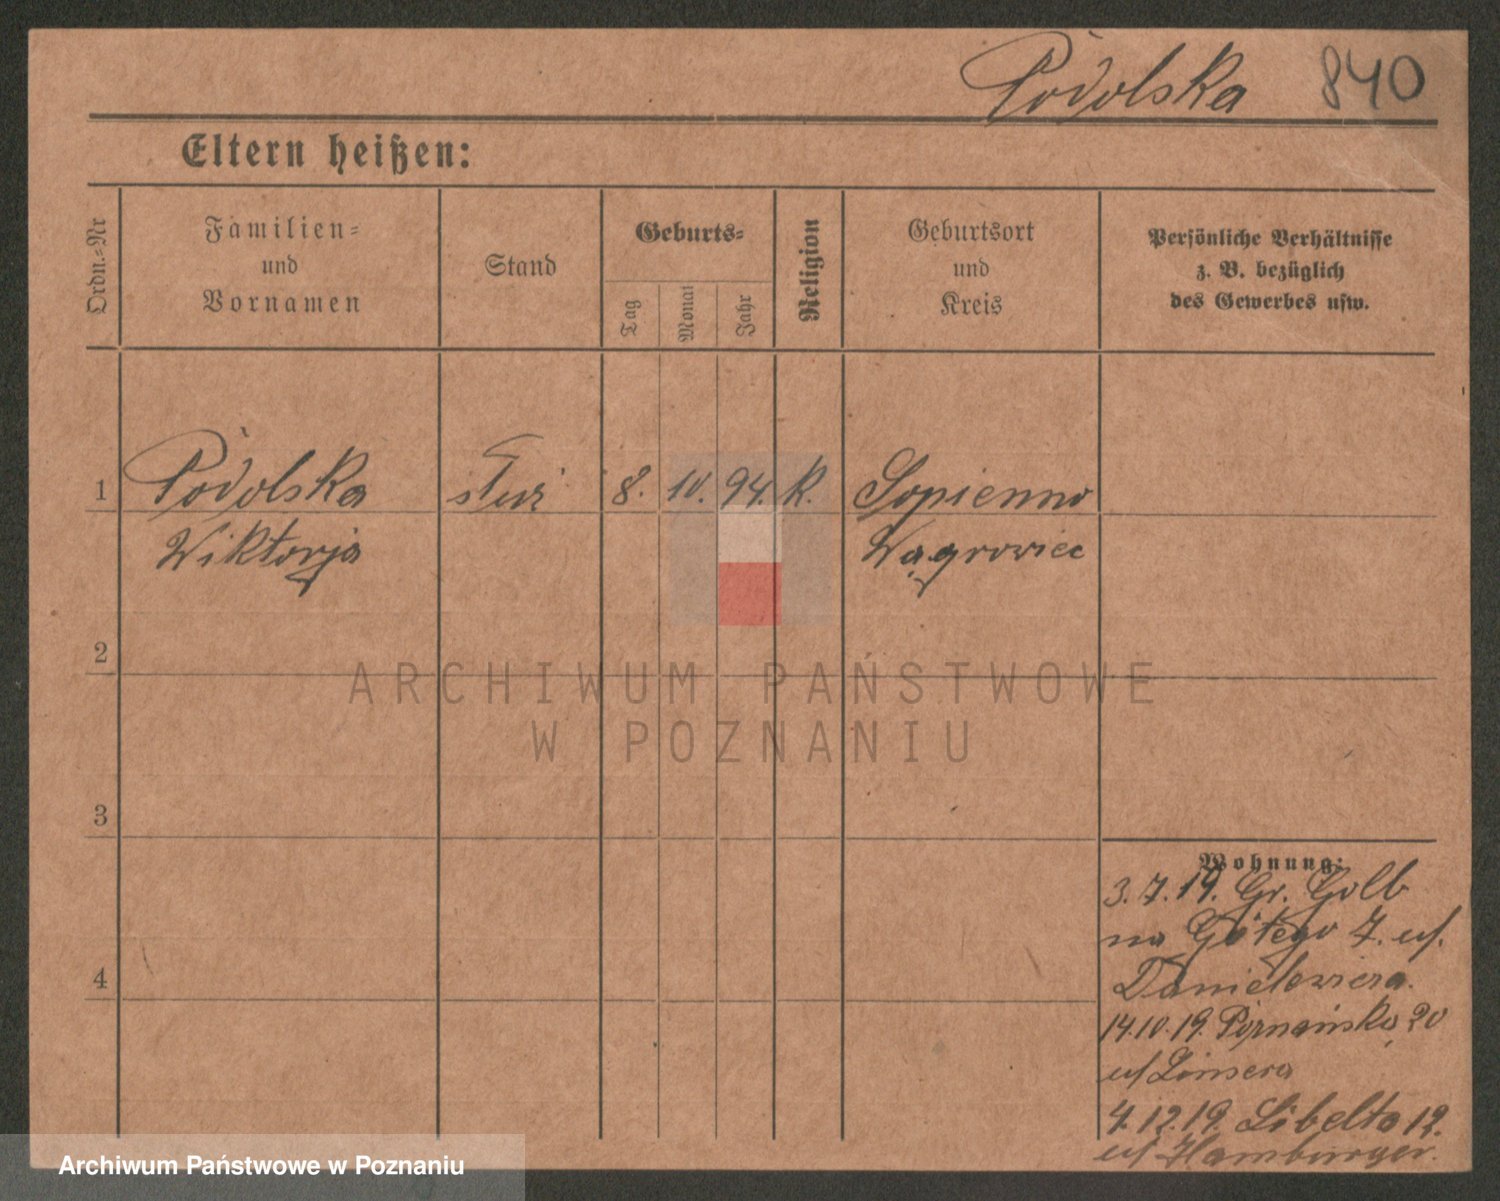 Podolska 840
Eltern heißen:
Ordn.-Nr
Familien-
und
Vornamen
Stand
Geburts-
Tag
Monat
Jahr
Religion
Geburtsort
und
Kreis
Persönliche Verhältnisse
z. B. bezüglich
des Gewerbes usw.
1 Podolska służ 8. 10. 94. k. Łopienno
Wiktorja Wągrowiec
2
ARCHIWUM PAŃSTWOWE
W POZNANIU
3
Wohnung:
3.7.19. Gr. Golb
na Götego 7. u/.
4
Danielewicza.
14.10.19. Poznańska 20
u/
4.12.19. Libelta 12.
u/ Hamburger.
Archiwum Państwowe w Poznaniu